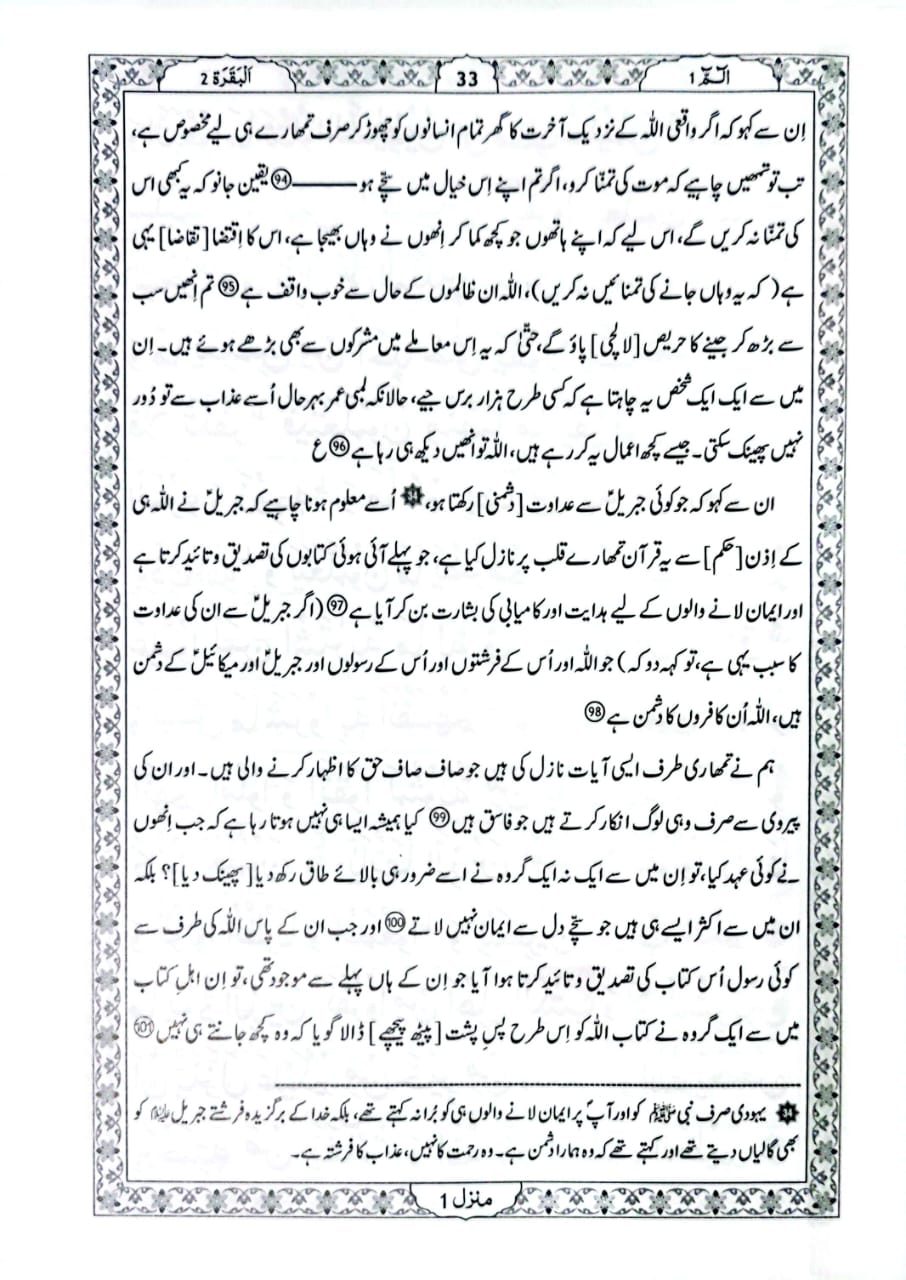 الٓمّٓ 1
33
اَلْبَقَرَة 2
اِن سے کہو کہ اگر واقعی اللہ کے نزدیک آخرت کا گھر تمام انسانوں کو چھوڑ کر صرف تمھارے ہی لیے مخصوص ہے،
تب تو تمھیں چاہیے کہ موت کی تمنّا کرو، اگر تم اپنے اِس خیال میں سچّے ہو ——— ۝94 یقین جانو کہ یہ کبھی اس
کی تمنّا نہ کریں گے، اس لیے کہ اپنے ہاتھوں جو کچھ کما کر اِنھوں نے وہاں بھیجا ہے، اس کا اِقتضا [تقاضا] یہی
ہے (کہ یہ وہاں جانے کی تمنائیں نہ کریں)، اللہ ان ظالموں کے حال سے خوب واقف ہے ۝95 تم اِنھیں سب
سے بڑھ کر جینے کا حریص [لالچی] پاؤ گے، حتّیٰ کہ یہ اِس معاملے میں مشرکوں سے بھی بڑھے ہوئے ہیں۔ اِن
میں سے ایک ایک شخص یہ چاہتا ہے کہ کسی طرح ہزار برس جیے، حالانکہ لمبی عمر بہرحال اُسے عذاب سے تو دُور
نہیں پھینک سکتی۔ جیسے کچھ اعمال یہ کر رہے ہیں، اللہ تو انھیں دیکھ ہی رہا ہے ۝96 ع
ان سے کہو کہ جو کوئی جبریلؑ سے عداوت [دشمنی] رکھتا ہو، 34 اُسے معلوم ہونا چاہیے کہ جبریلؑ نے اللہ ہی
کے اِذن [حکم] سے یہ قرآن تمھارے قلب پر نازل کیا ہے، جو پہلے آئی ہوئی کتابوں کی تصدیق و تائید کرتا ہے
اور ایمان لانے والوں کے لیے ہدایت اور کامیابی کی بشارت بن کر آیا ہے ۝97 (اگر جبریلؑ سے ان کی عداوت
کا سبب یہی ہے، تو کہہ دو کہ) جو اللہ اور اُس کے فرشتوں اور اُس کے رسولوں اور جبریلؑ اور میکائیلؑ کے دشمن
ہیں، اللہ اُن کافروں کا دشمن ہے ۝98
ہم نے تمھاری طرف ایسی آیات نازل کی ہیں جو صاف صاف حق کا اظہار کرنے والی ہیں۔ اور ان کی
پیروی سے صرف وہی لوگ انکار کرتے ہیں جو فاسق ہیں ۝99 کیا ہمیشہ ایسا ہی نہیں ہوتا رہا ہے کہ جب اِنھوں
نے کوئی عہد کیا، تو اِن میں سے ایک نہ ایک گروہ نے اسے ضرور ہی بالائے طاق رکھ دیا [پھینک دیا]؟ بلکہ
ان میں سے اکثر ایسے ہی ہیں جو سچّے دل سے ایمان نہیں لاتے ۝100 اور جب ان کے پاس اللہ کی طرف سے
کوئی رسول اُس کتاب کی تصدیق و تائید کرتا ہوا آیا جو اِن کے ہاں پہلے سے موجود تھی، تو اِن اہلِ کتاب
میں سے ایک گروہ نے کتاب اللہ کو اِس طرح پسِ پشت [پیٹھ پیچھے] ڈالا گویا کہ وہ کچھ جانتے ہی نہیں ۝101
34 یہودی صرف نبی ﷺ کو اور آپؐ پر ایمان لانے والوں ہی کو بُرا نہ کہتے تھے، بلکہ خدا کے برگزیدہ فرشتے جبریل علیہ السلام کو
بھی گالیاں دیتے تھے اور کہتے تھے کہ وہ ہمارا دشمن ہے۔ وہ رحمت کا نہیں، عذاب کا فرشتہ ہے۔
منزل 1